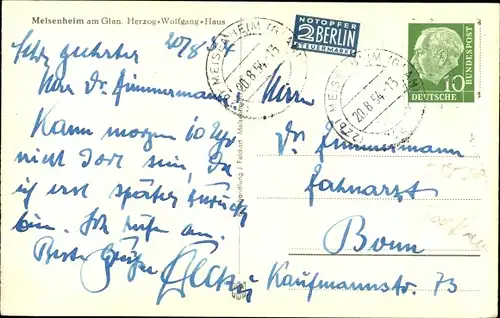 Meisenheim am Glan. Herzog-Wolfgang-Haus
20/8 54
Sehr geehrter
Herr Dr. Zimmermann
Kann morgen 10 Uhr
nicht dort sein, da
ich erst später zurück
bin. Ich rufe an.
Beste Grüße
NOTOPFER
2 BERLIN
STEUERMARKE
20.8.54.-13
20.8.54.-13
(22b) MEISENHEIM (GLAN)
10
DEUTSCHE BUNDESPOST
Herrn
Dr. Zimmermann
Zahnarzt
Bonn
Kaufmannstr. 73